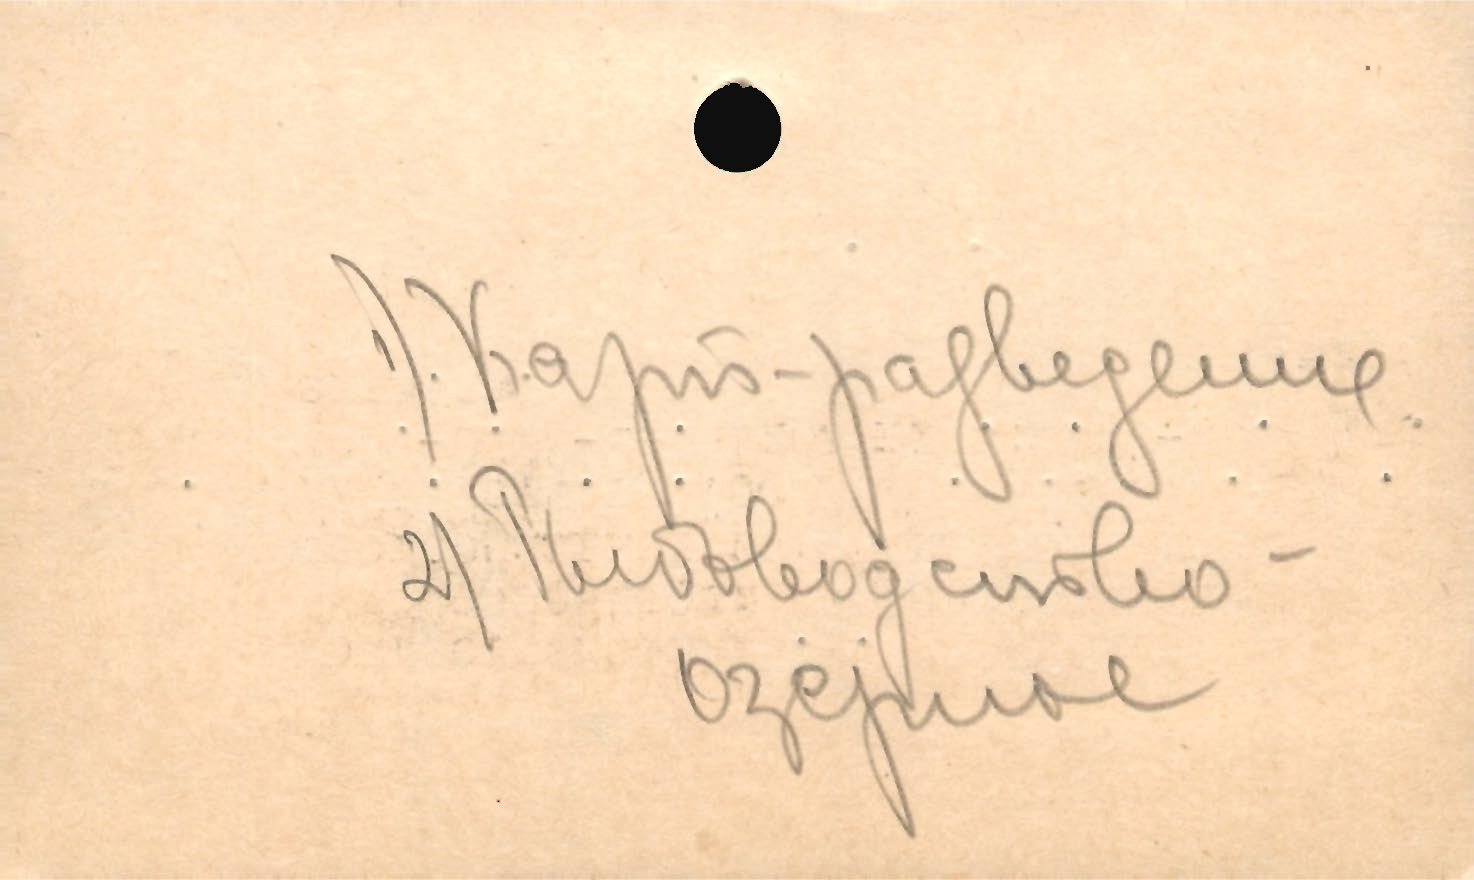 1). Карп-разведение
2) Рыбоводство -
озерное